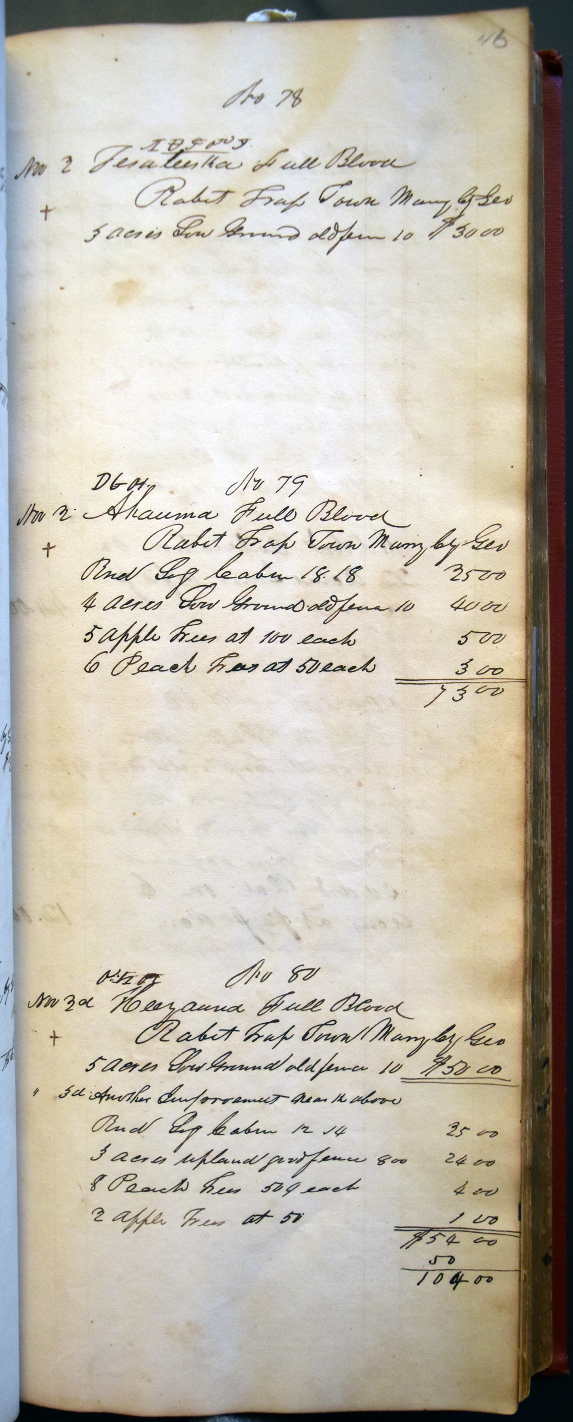 46
No 78
Nov 2 Full Blood
Rabit Trap Town Murry by Geo
+
5 acres Low Ground old fenc 10 $ 50 00
No 79
Nov 2 Ahauma Full Blood
Rabit Trap Town Murry by Geo
+
Rnd Log Cabin 18.18 25 00
4 acres Low Ground old fence 10 40 00
5 apple Trees at 100 each 5 00
6 Peach Trees at 50 each 3 00
73 00
No 80
Nov 2d Full Blood
Rabit Trap Town Murry by Geo
+
5 acres Low Ground old fence 10 $50 00
" 3d Another Improvement near the above
Rnd Log Cabin 12 14 25 00
3 acres upland good fence 8 00 24 00
8 Peach Trees 50 each 4 00
2 apple Trees at 50 1 00
$54 00
50
104 00